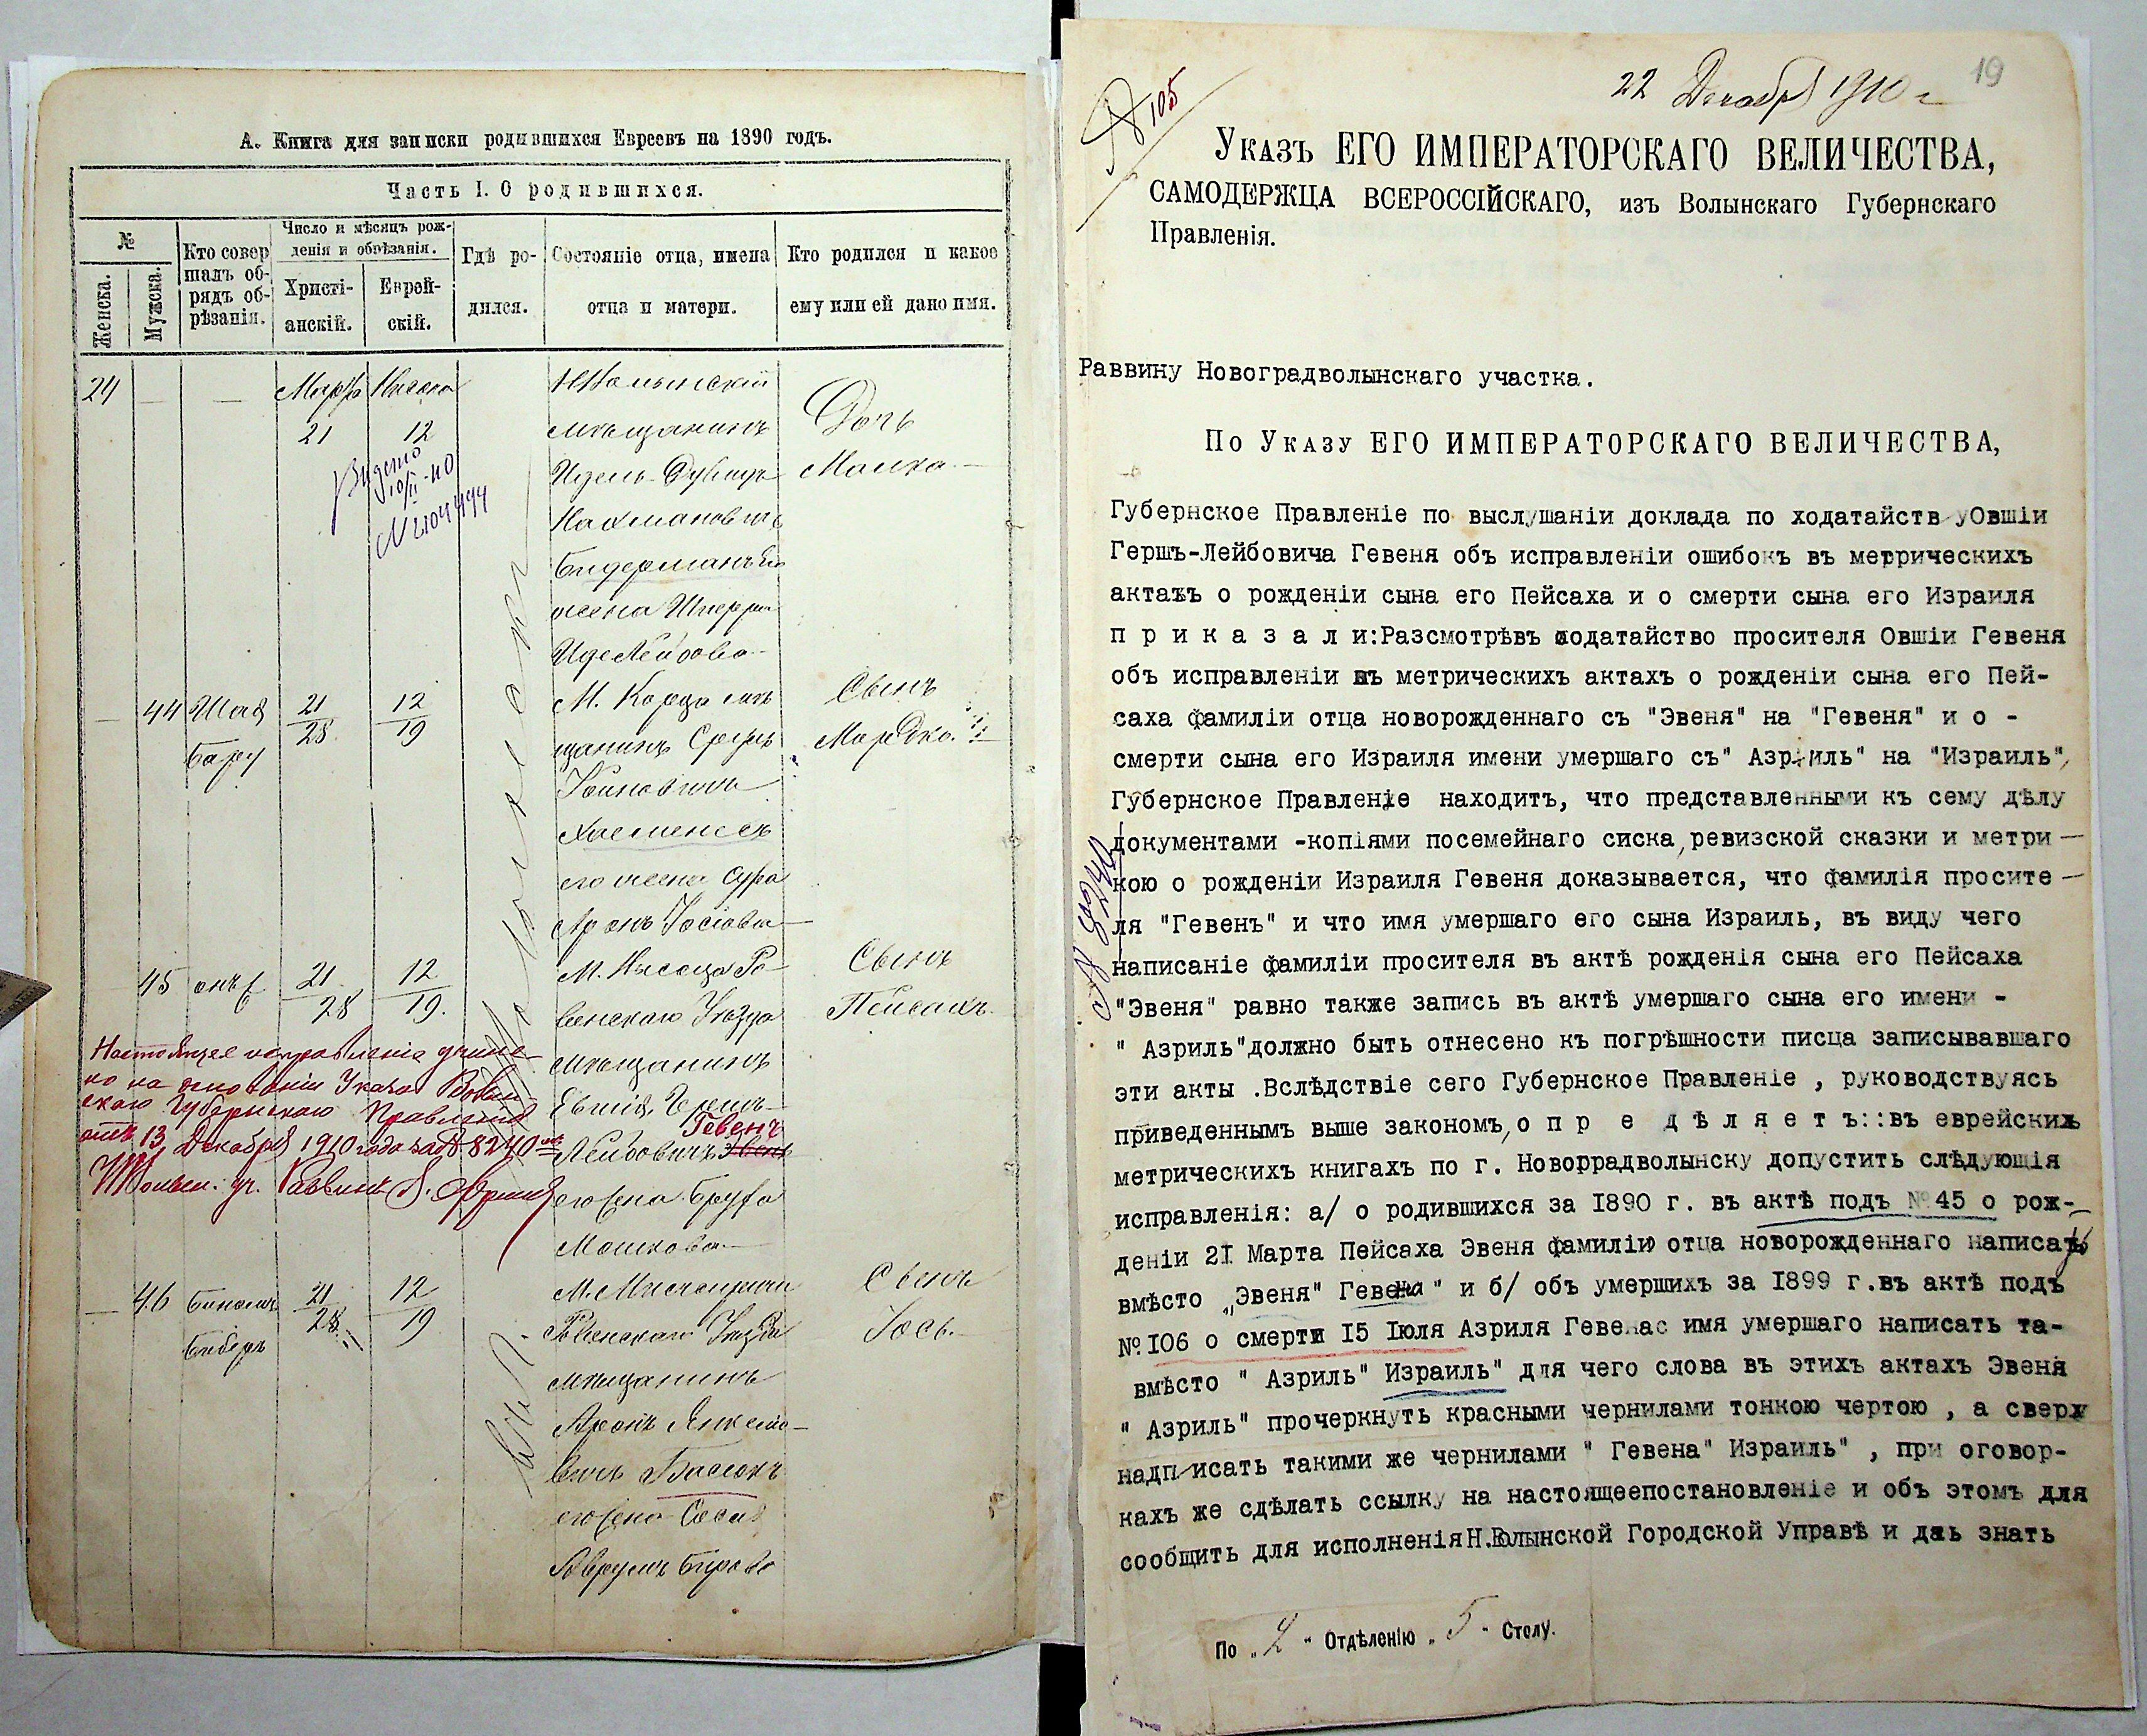 А. Книга для записки родившихся Евреевъ на 1890 годъ.
Часть I. О родившихся.
№
Женска.
Мужска.
Кто совер
шалъ об-
рядъ об-
рѣзанія.
Число и мѣсяцъ рож-
денія и обрѣзанія.
Христі-
анскій.
Еврей-
скій.
Гдѣ ро-
дился.
Состояніе отца, имена
отца и матери.
Кто родился и какое
ему или ей дано имя.
24 — — Марта
21
12
Видено
10/II-40
НВолынскій
мѣщанинъ
Нахмановичъ
Бидерманъ его
жена
Дочь
Малка.—
— 44 Шая
21
28
12
19
М. Кореца мѣ
щанинъ
его жена Сура
Сынъ
Мордко.
45 онъ
21
28
12
19.
ъенскаго Уѣзда
мѣщанинъ
Евшія Гершъ-
Гевенъ
Лейбовичъ Эвень
его жена Бруха
Мошкова—
Сынъ
Пейсахъ.
Настоящее исправленіе учине-
но на основаніи Указа Волын-
скаго Губернскаго Правленія
отъ 13 Декабря 1910 года за № 8240
НВолын. уч. Раввинъ
— 46
Биберъ
21
28.
12
19
Ровенскаго Уѣзда
мѣщанинъ
Аронъ Янкело-
вичъ
его жена
Сынъ
Іось.—
19
22 Декабря 1910 г
№ 105
Указъ ЕГО ИМПЕРАТОРСКАГО ВЕЛИЧЕСТВА,
САМОДЕРЖЦА ВСЕРОССІЙСКАГО, изъ Волынскаго Губернскаго
Правленія.
Раввину Новоградволынскаго участка.
По Указу ЕГО ИМПЕРАТОРСКАГО ВЕЛИЧЕСТВА,
Губернское Правленіе по выслушаніи доклада по ходатайств уОвшіи
Гершъ-Лейбовича Гевеня объ исправленіи ошибокъ въ метрическихъ
актахъ о рожденіи сына его Пейсаха и о смерти сына его Израиля
п р и к а з а л и:Разсмотрѣвъ ходатайство просителя Овшіи Гевеня
объ исправленіи въ метрическихъ актахъ о рожденіи сына его Пей-
саха фамиліи отца новорожденнаго съ "Эвеня" на "Гевеня" и о -
смерти сына его Израиля имени умершаго съ" Азриль" на "Израиль",
Губернское Правленіе находитъ, что представленными къ сему дѣлу
документами -копіями посемейнаго сиска, ревизской сказки и метри —
кою о рожденіи Израиля Гевеня доказывается, что фамилія просите —
ля "Гевенъ" и что имя умершаго его сына Израиль, въ виду чего
написаніе фамиліи просителя въ актѣ рожденія сына его Пейсаха
"Эвеня" равно также запись въ актѣ умершаго сына его имени -
" Азриль"должно быть отнесено къ погрѣшности писца записывавшаго
эти акты .Вслѣдствіе сего Губернское Правленіе , руководствуясь
приведеннымъ выше закономъ, о п р е д ѣ л я е т ъ::въ еврейскихъ
метрическихъ книгахъ по г. Новоррадволынску допустить слѣдующія
исправленія: а/ о родившихся за 1890 г. въ актѣ подъ №45 о рож-
деніи 2I Марта Пейсаха Эвеня фамилію отца новорожденнаго написать
вмѣсто „Эвеня" Гевена " и б/ объ умершихъ за I899 г.въ актѣ подъ
№ I06 о смерти I5 Iюля Азриля Гевенас имя умершаго написать та-
вмѣсто " Азриль" Израиль" для чего слова въ этихъ актахъ Эвеня
" Азриль" прочеркнуть красными чернилами тонкою чертою , а сверх
надписать такими же чернилами " Гевена" Израиль" , при оговор-
кахъ же сдѣлать ссылку на настоящеепостановленіе и объ этомъ для
сообщить для исполненія Н.Волынской Городской Управѣ и дать знать
№ 8240
По „ 2 " Отдѣленію „ 5 " Столу.